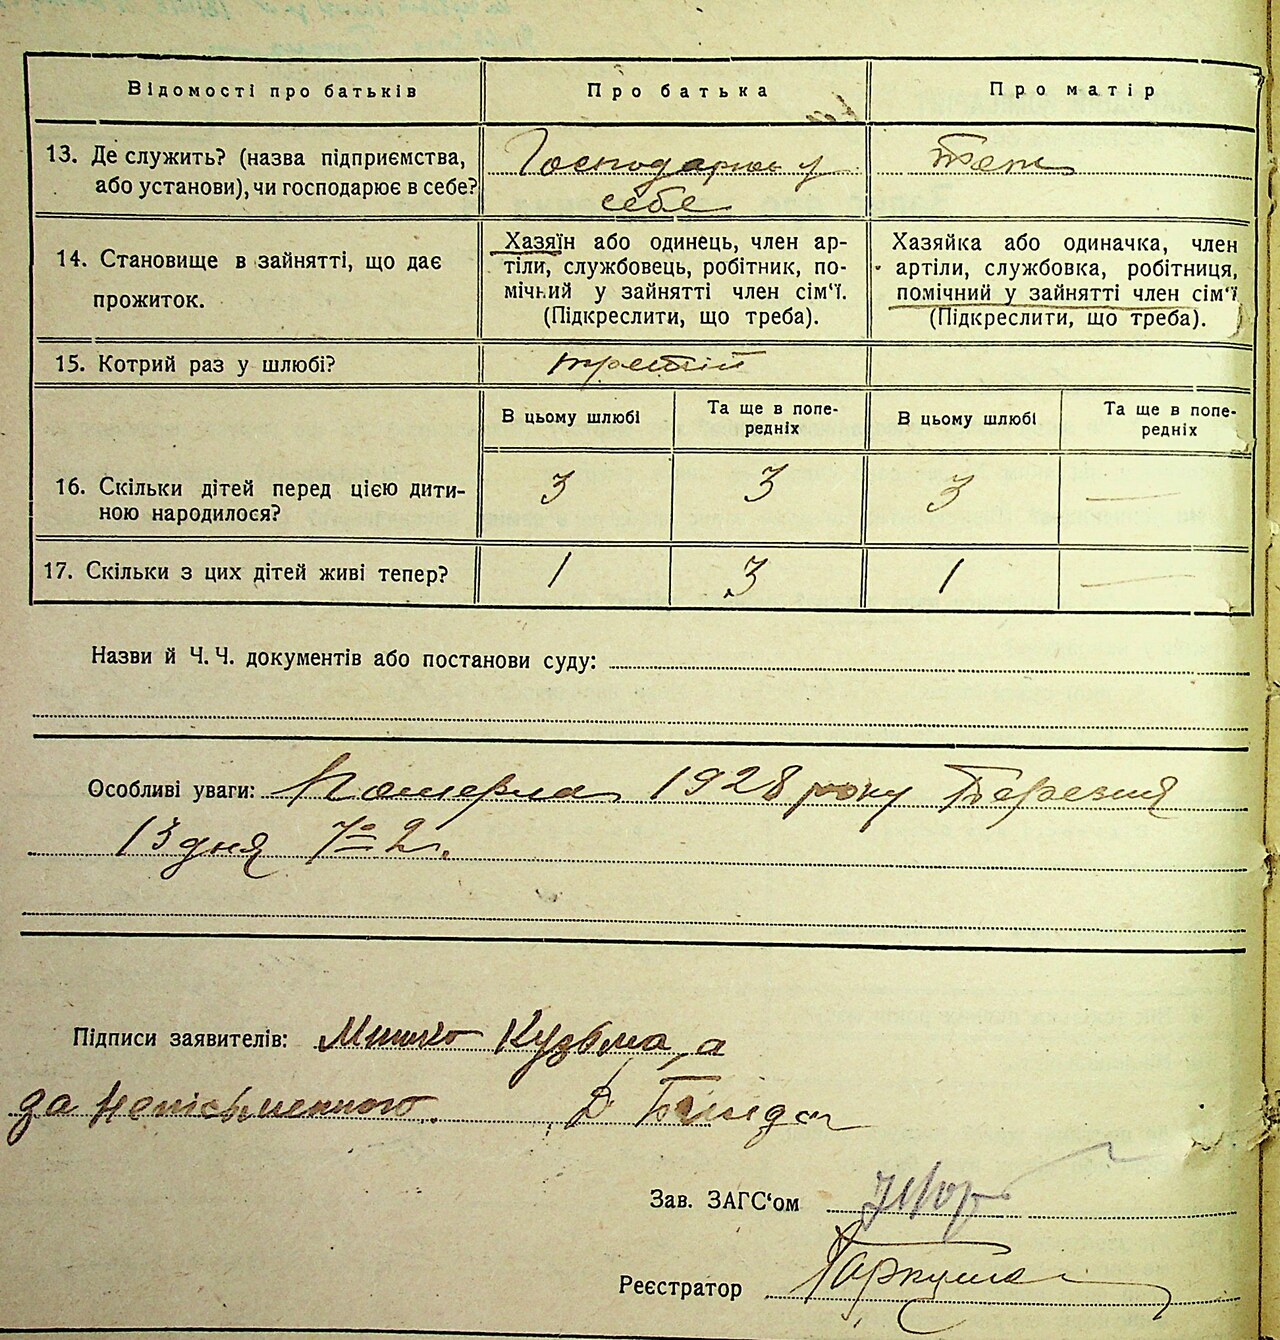 Відомості про батьків
Про батька
Про матір
13. Де служить? (назва підприємства,
або установи), чи господарює в себе?
Господарює у
себе
Теж
14. Становище в зайнятті, що дає
прожиток.
Хазяїн або одинець, член ар-
тіли, службовець, робітник, по-
мічний у зайнятті член сім'ї.
(Підкреслити, що треба).
Хазяйка або одиначка, член
артіли, службовка, робітниця,
помічний у зайнятті член сім'ї
(Підкреслити, що треба).
15. Котрий раз у шлюбі?
третій
В цьому шлюбі
Та ще в попе-
редніх
В цьому шлюбі
Та ще в попе-
редніх
16. Скільки дітей перед цією дити-
ною народилося?
3 3 3 —
17. Скільки з цих дітей живі тепер?
1 3 1 —
Назви й Ч. Ч. документів або постанови суду:
Особливі уваги: Померла 1928 року Березня
13 дня
Підписи заявителів: Кузьма, а
за неписьменного
Зав. ЗАГС'ом
Реєстратор Гаркуша